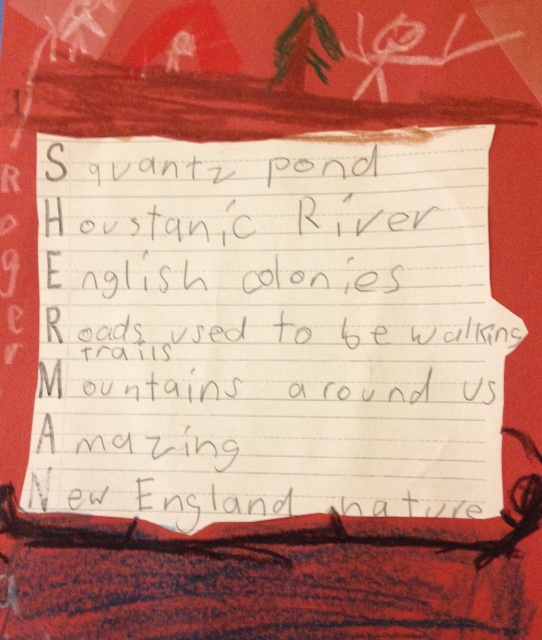 Squantz pond
Houstanic River
English colonies
Roads used to be walking
trails
Mountains around us
Amazing
New England nature
Roger